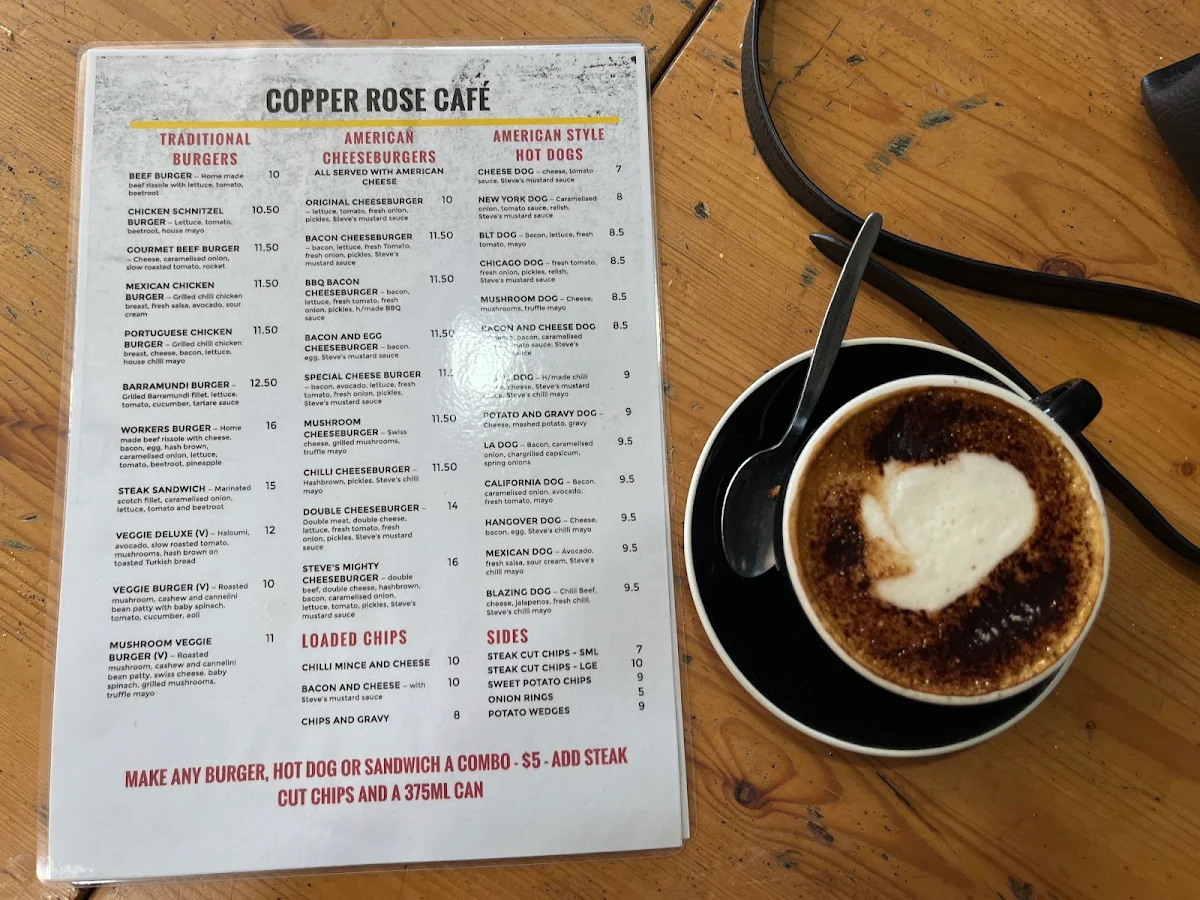 COPPER ROSE CAFÉ
TRADITIONAL
BURGERS
BEEF BURGER – Home made 10
beef rissole with lettuce, tomato,
beetroot
CHICKEN SCHNITZEL 10.50
BURGER – Lettuce, tomato,
beetroot, house mayo
GOURMET BEEF BURGER 11.50
– Cheese, caramelised onion,
slow roasted tomato, rocket
MEXICAN CHICKEN 11.50
BURGER – Grilled chilli chicken
breast, fresh salsa, avocado, sour
cream
PORTUGUESE CHICKEN 11.50
BURGER – Grilled chilli chicken
breast, cheese, bacon, lettuce,
house chilli mayo
BARRAMUNDI BURGER – 12.50
Grilled Barramundi fillet, lettuce,
tomato, cucumber, tartare sauce
WORKERS BURGER – Home 16
made beef rissole with cheese,
bacon, egg, hash brown,
caramelised onion, lettuce,
tomato, beetroot, pineapple
STEAK SANDWICH – Marinated 15
scotch fillet, caramelised onion,
lettuce, tomato and beetroot
VEGGIE DELUXE (V) – Haloumi, 12
avocado, slow roasted tomato,
mushrooms, hash brown on
toasted Turkish bread
VEGGIE BURGER (V) – Roasted 10
mushroom, cashew and cannelini
bean patty with baby spinach,
tomato, cucumber, aoli
MUSHROOM VEGGIE 11
BURGER (V) – Roasted
mushroom, cashew and cannelini
bean patty, swiss cheese, baby
spinach, grilled mushrooms,
truffle mayo
AMERICAN
CHEESEBURGERS
ALL SERVED WITH AMERICAN
CHEESE
ORIGINAL CHEESEBURGER 10
– lettuce, tomato, fresh onion,
pickles, Steve's mustard sauce
BACON CHEESEBURGER 11.50
– bacon, lettuce, fresh Tomato,
fresh onion, pickles, Steve's
mustard sauce
BBQ BACON 11.50
CHEESEBURGER – bacon,
lettuce, fresh tomato, fresh
onion, pickles, h/made BBQ
sauce
BACON AND EGG 11.50
CHEESEBURGER – bacon,
egg, Steve's mustard sauce
SPECIAL CHEESE BURGER
– bacon, avocado, lettuce, fresh
tomato, fresh onion, pickles,
Steve's mustard sauce
MUSHROOM 11.50
CHEESEBURGER – Swiss
cheese, grilled mushrooms,
truffle mayo
CHILLI CHEESEBURGER – 11.50
Hashbrown, pickles, Steve's chilli
mayo
DOUBLE CHEESEBURGER – 14
Double meat, double cheese,
lettuce, fresh tomato, fresh
onion, pickles, Steve's mustard
sauce
STEVE'S MIGHTY 16
CHEESEBURGER – double
beef, double cheese, hashbrown,
bacon, caramelised onion,
lettuce, tomato, pickles, Steve's
mustard sauce
LOADED CHIPS
CHILLI MINCE AND CHEESE 10
BACON AND CHEESE – with 10
Steve's mustard sauce
CHIPS AND GRAVY 8
AMERICAN STYLE
HOT DOGS
CHEESE DOG – cheese, tomato 7
sauce, Steve's mustard sauce
NEW YORK DOG – Caramelised 8
onion, tomato sauce, relish,
Steve's mustard sauce
BLT DOG – Bacon, lettuce, fresh 8.5
tomato, mayo
CHICAGO DOG – fresh tomato, 8.5
fresh onion, pickles, relish,
Steve's mustard sauce
MUSHROOM DOG – Cheese, 8.5
mushrooms, truffle mayo
BACON AND CHEESE DOG 8.5
bacon, caramelised
sauce, Steve's
DOG – H/made chilli 9
cheese, Steve's mustard
Steve's chilli mayo
POTATO AND GRAVY DOG – 9
Cheese, mashed potato, gravy
LA DOG – Bacon, caramelised 9.5
onion, chargrilled capsicum,
spring onions
CALIFORNIA DOG – Bacon, 9.5
caramelised onion, avocado,
fresh tomato, mayo
HANGOVER DOG – Cheese, 9.5
bacon, egg, Steve's chilli mayo
MEXICAN DOG – Avocado, 9.5
fresh salsa, sour cream, Steve's
chilli mayo
BLAZING DOG – Chilli Beef, 9.5
cheese, jalapenos, fresh chilli,
Steve's chilli mayo
SIDES
STEAK CUT CHIPS - SML 7
STEAK CUT CHIPS - LGE 10
SWEET POTATO CHIPS 9
ONION RINGS 5
POTATO WEDGES 9
MAKE ANY BURGER, HOT DOG OR SANDWICH A COMBO - $5 - ADD STEAK
CUT CHIPS AND A 375ML CAN